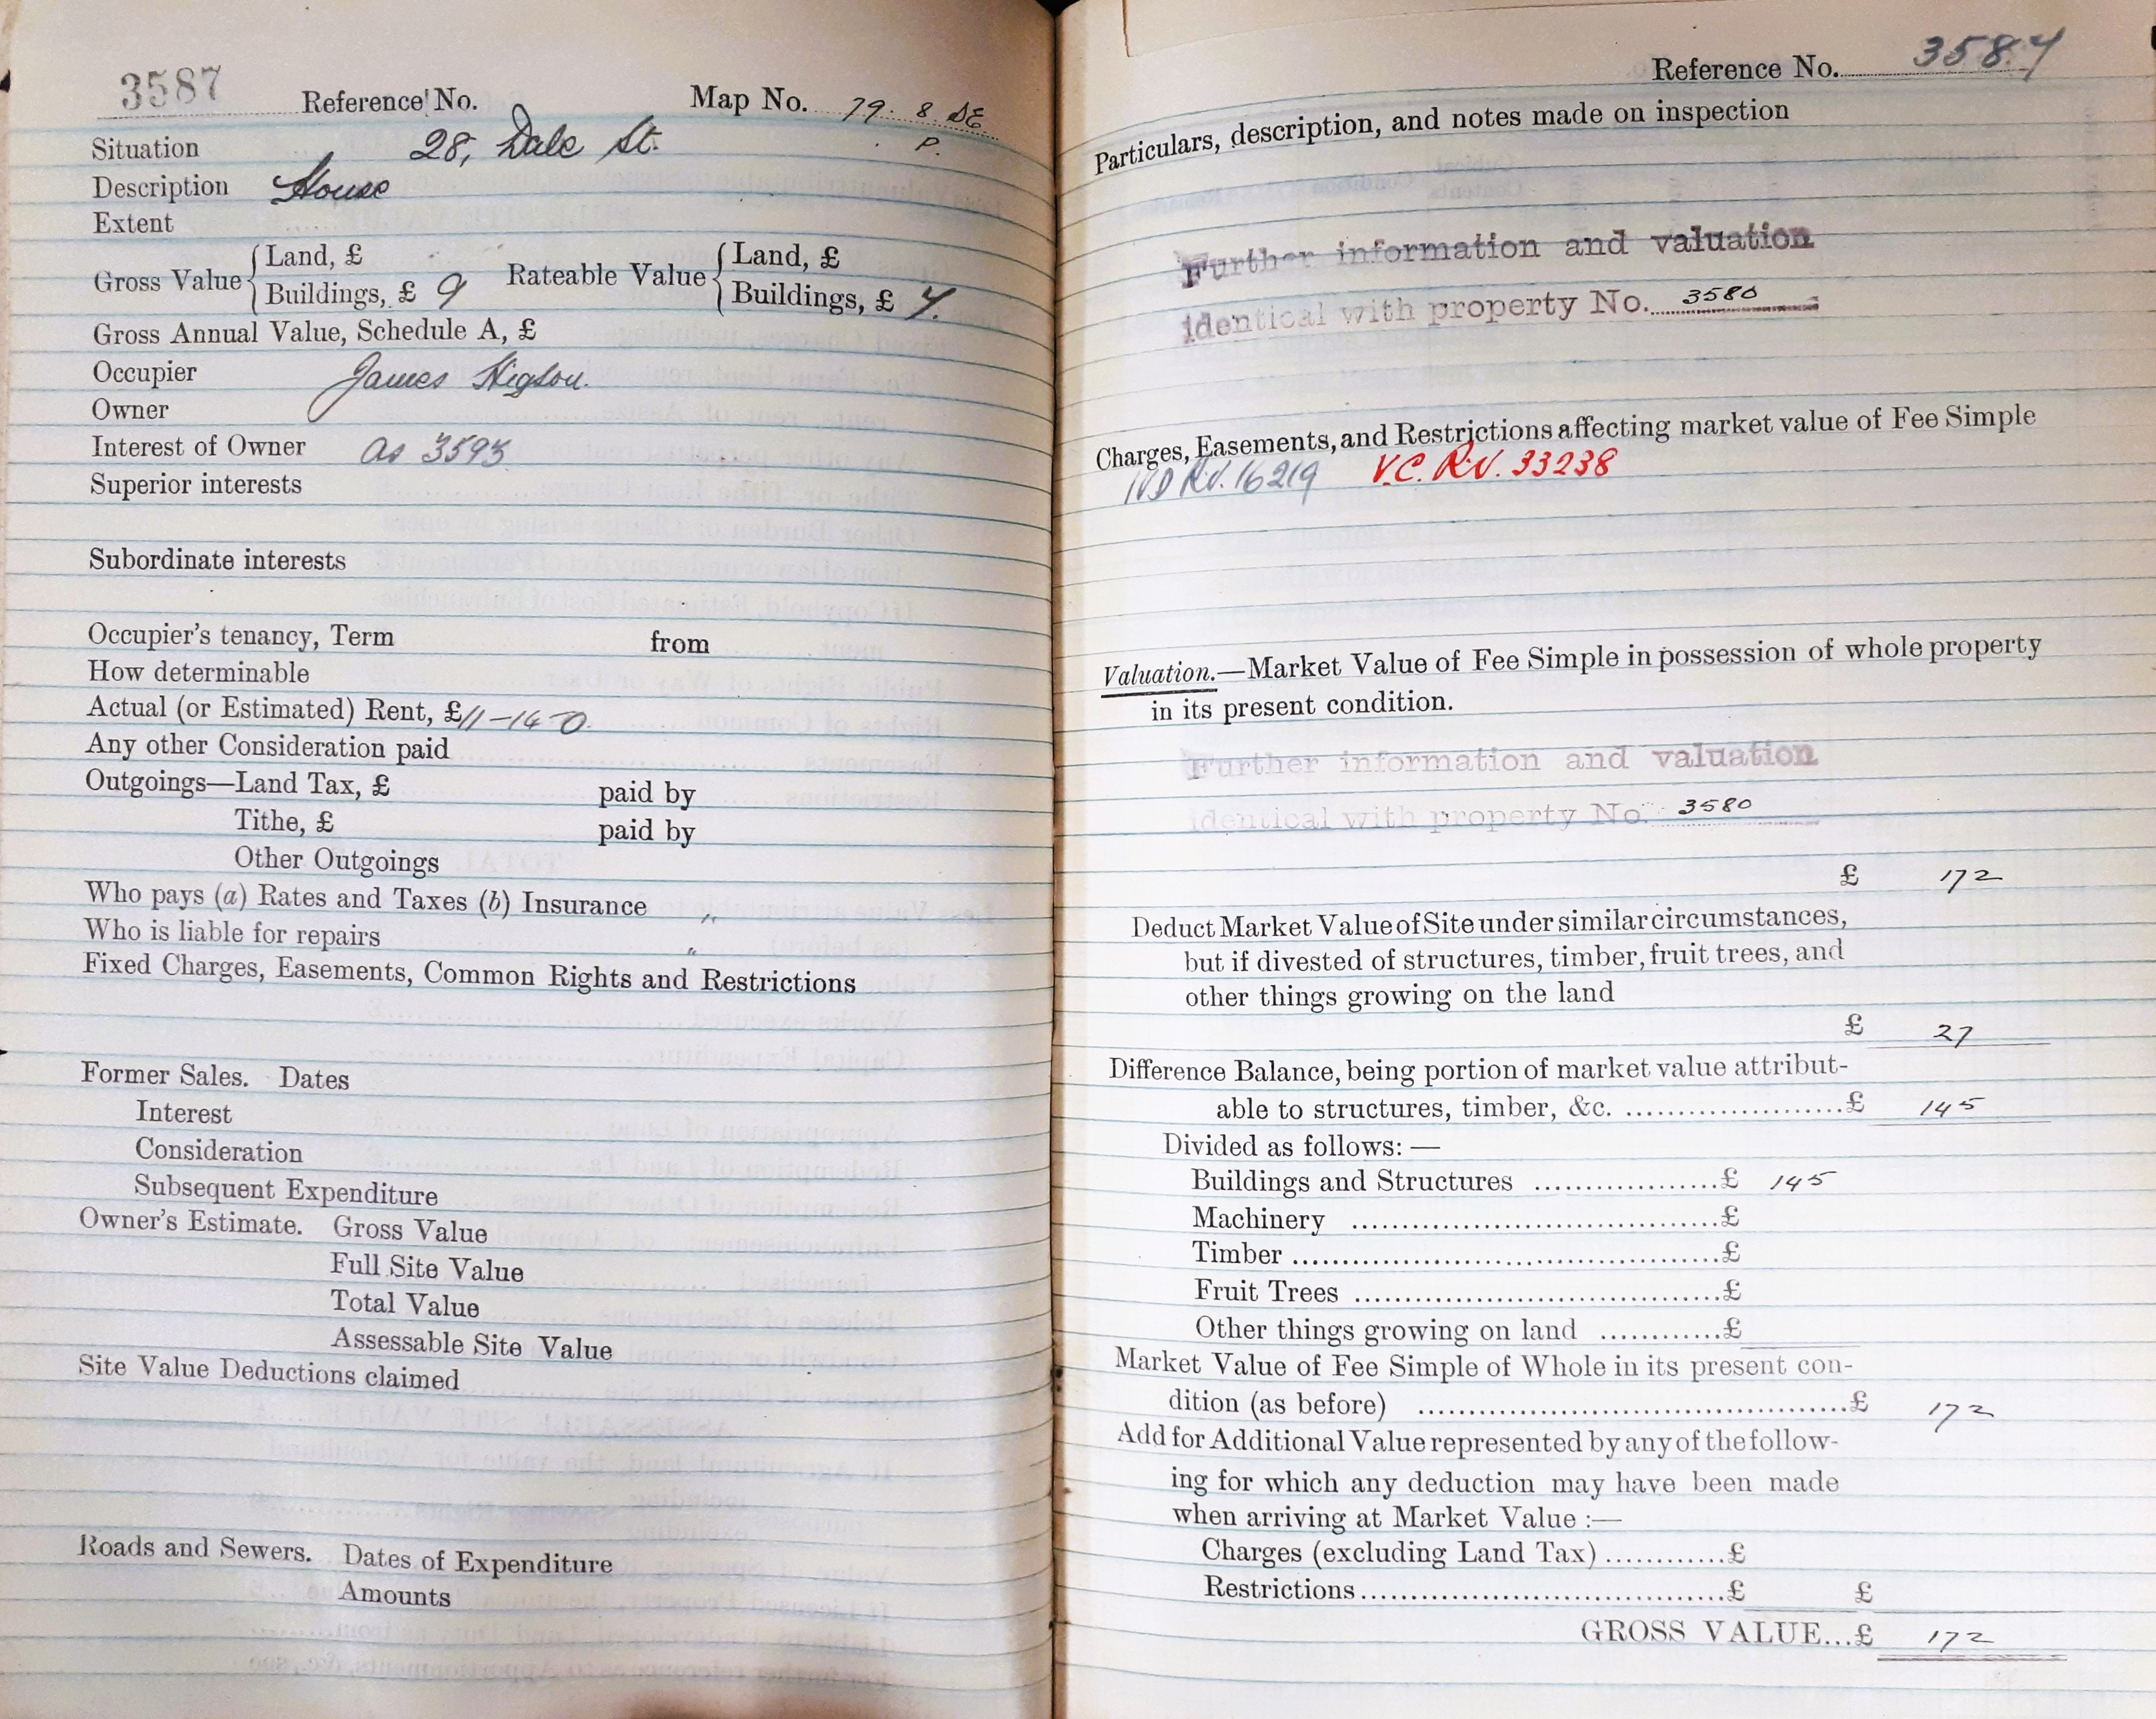 3587 Reference No. Map No. 79. 8. SE.
P.
Situation 28, Dale St.
Description House
Extent
Gross Value { Land, £ Rateable Value { Land, £
Buildings, £ 9 Buildings, £ 7.
Gross Annual Value, Schedule A, £
Occupier James Higson.
Owner
Interest of Owner as 3593
Superior interests
Subordinate interests
Occupier's tenancy, Term from
How determinable
Actual (or Estimated) Rent, £ 11-14-0.
Any other Consideration paid
Outgoings—Land Tax, £ paid by
Tithe, £ paid by
Other Outgoings
Who pays (a) Rates and Taxes (b) Insurance "
Who is liable for repairs "
Fixed Charges, Easements, Common Rights and Restrictions
Former Sales. Dates
Interest
Consideration
Subsequent Expenditure
Owner's Estimate. Gross Value
Full Site Value
Total Value
Assessable Site Value
Site Value Deductions claimed
Roads and Sewers. Dates of Expenditure
Amounts
Reference No. 3587
Particulars, description, and notes made on inspection
Further information and valuation
identical with property No. 3580
Charges, Easements, and Restrictions affecting market value of Fee Simple
IVD RV. 16219 V.C. R.V. 33238
Valuation.—Market Value of Fee Simple in possession of whole property
in its present condition.
Further information and valuation
identical with property No. 3580
£ 172
Deduct Market Value of Site under similar circumstances,
but if divested of structures, timber, fruit trees, and
other things growing on the land
£ 27
Difference Balance, being portion of market value attribut-
able to structures, timber, &c. ....................£ 145
Divided as follows: —
Buildings and Structures ..................£ 145
Machinery ....................................£
Timber ..........................................£
Fruit Trees ....................................£
Other things growing on land ............£
Market Value of Fee Simple of Whole in its present con-
dition (as before) ..........................................£ 172
Add for Additional Value represented by any of the follow-
ing for which any deduction may have been made
when arriving at Market Value :—
Charges (excluding Land Tax) ............£
Restrictions ....................................£ £
GROSS VALUE...£ 172